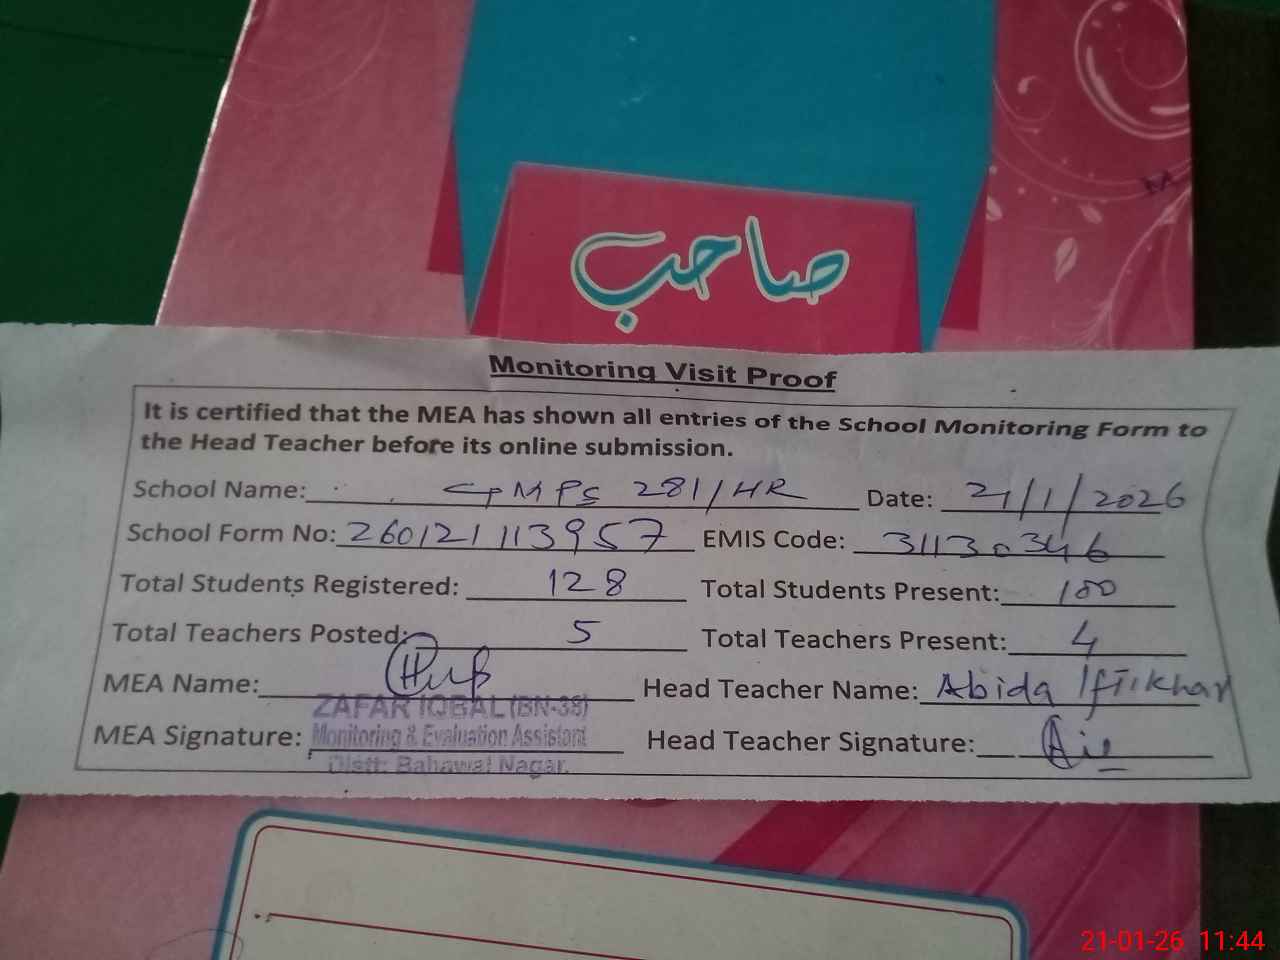 صاحب
Monitoring Visit Proof
It is certified that the MEA has shown all entries of the School Monitoring Form to
the Head Teacher before its online submission.
School Name: GMPS 281/HR Date: 21/1/2026
School Form No: 260121113957 EMIS Code: 31130346
Total Students Registered: 128 Total Students Present: 100
Total Teachers Posted: 5 Total Teachers Present: 4
MEA Name: Head Teacher Name: Abida Iftikhar
ZAFAR IQBAL (BN-38)
MEA Signature: Monitoring & Evaluation Assistant Head Teacher Signature:
Distt: Bahawal Nagar.
21-01-26 11:44